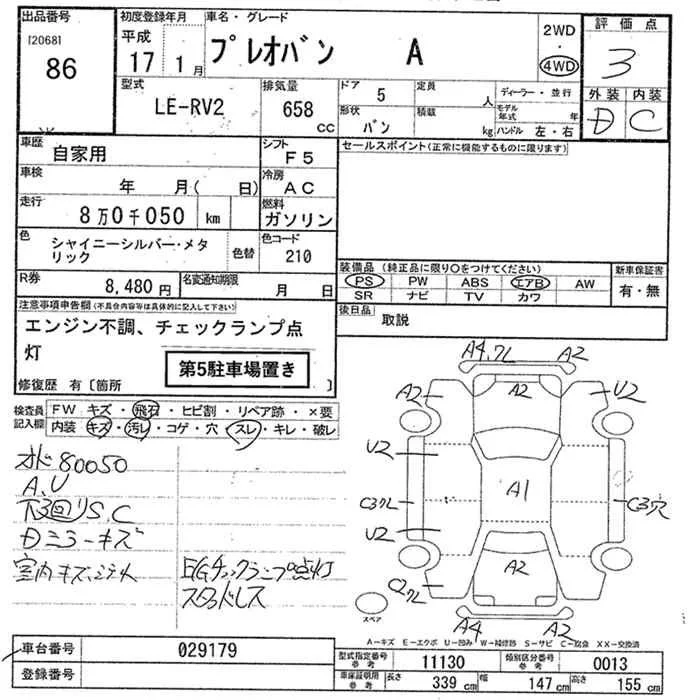 出品番号
[2068]
86
初度登録年月
平成
17 1月
車名・グレード
プレオバン A
2WD
4WD
評価点
3
外装 内装
D C
型式
LE-RV2
排気量
658
CC
ドア
5
形状
バン
定員
人
積載
kg
ディーラー・並行
モデル年式 年
ハンドル 左・右
車歴
自家用
シフト
F5
車検
年 月( 日)
冷房
AC
走行
8万0千050 km
燃料
ガソリン
色
シャイニーシルバー・メタリック
色替
色コード
210
R券
8,480円
名変通知期限
月 日
セールスポイント(正常に機能するものに限ります)
装備品 (純正品に限り○をつけてください)
PS PW ABS エアB AW
SR ナビ TV カワ
新車保証書
有・無
後日品
取説
注意事項申告欄(不具合内容等は具体的に記入して下さい)
エンジン不調、チェックランプ点
灯
第5駐車場置き
修復歴 有〔箇所 〕
検査員記入欄
FW キズ・飛石・ヒビ割・リペア跡・×要
内装 キズ・汚レ・コゲ・穴・スレ・キレ・破レ
オド80050
A.U
下回りS.C
Dミラーキズ
室内キズ、シミ
E/Gチェックランプ点灯
スタッドレス
A4,クレ A2
A2 A2 U2
U2
C3クレ A1 C3穴
U2
A2
クレ
A4 A2
スペア
A-キズ E-エクボ U-凹み W-補修跡 S-サビ C-腐食 XX-交換済
車台番号
029179
登録番号
型式指定番号
参考
11130
類別区分番号
参考
0013
車庫証明用
参考
長さ 339 cm 幅 147 cm 高さ 155 cm